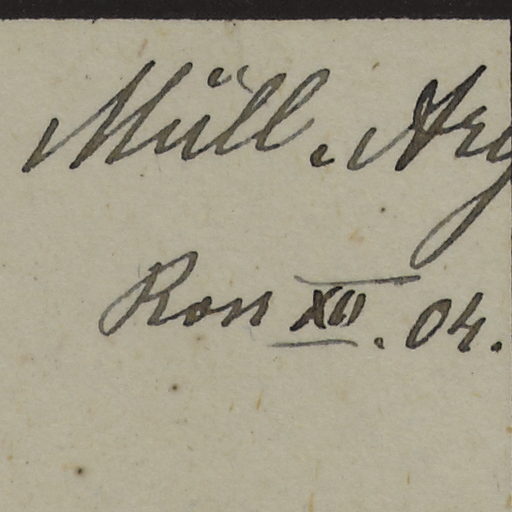 Müll. Arg
Ross XII. 04.